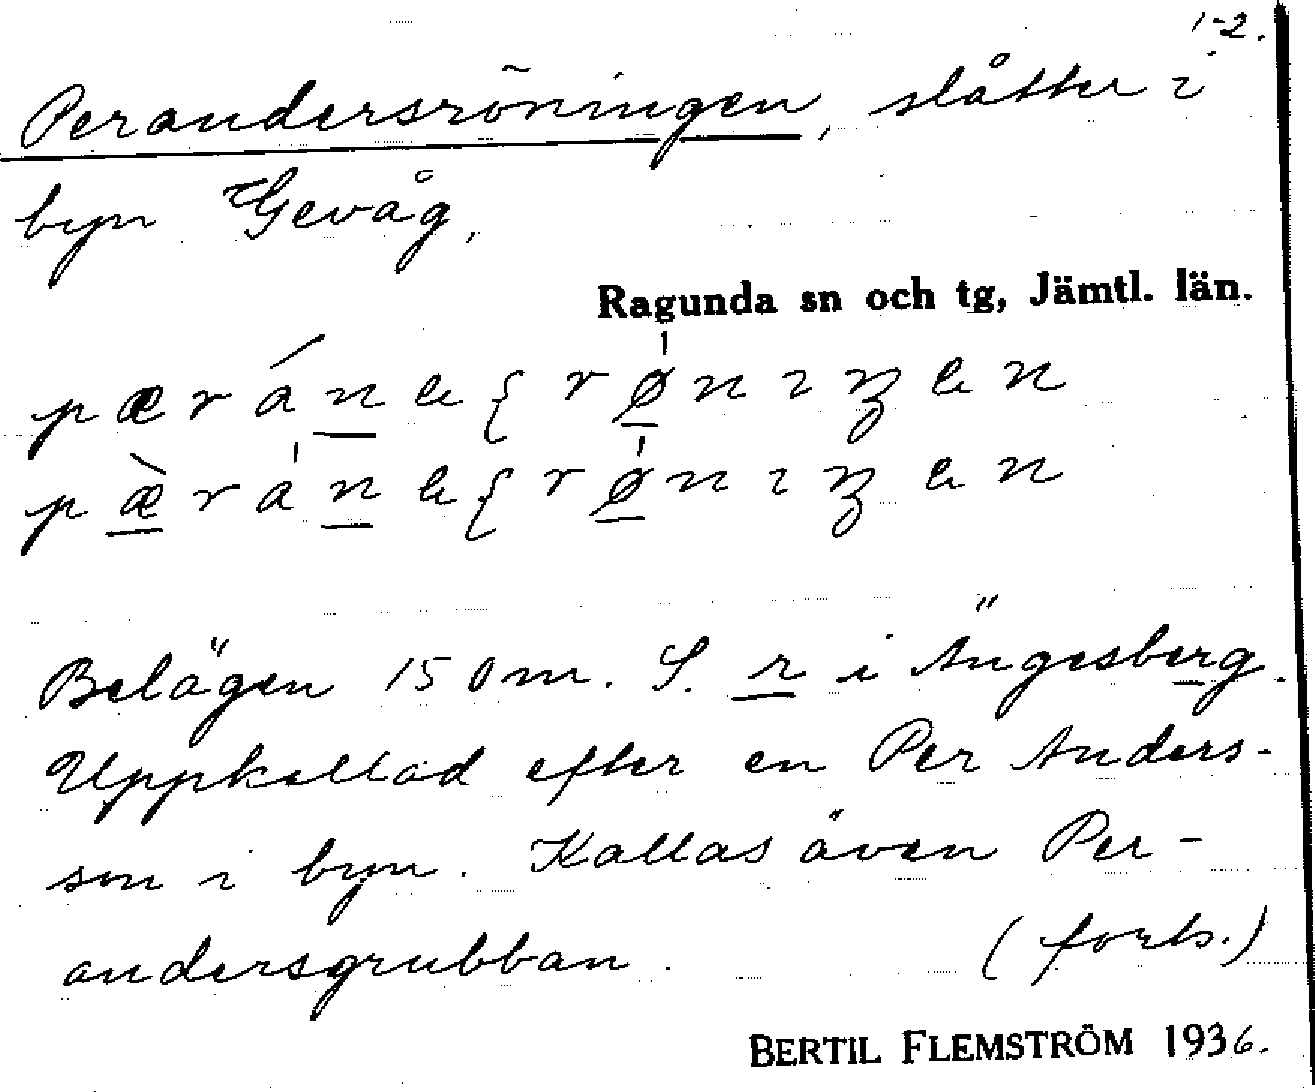 1-2.
Perandersröningen, slåtter i
byn Gevåg,
Ragunda sn och tg, Jämtl. län.
Belägen 150 m. S. r i Ängesberg.
Uppkallad efter en Per Anders-
son i byn. Kallas även Per-
andersgrubban. (forts.)
BERTIL FLEMSTRÖM 1936.